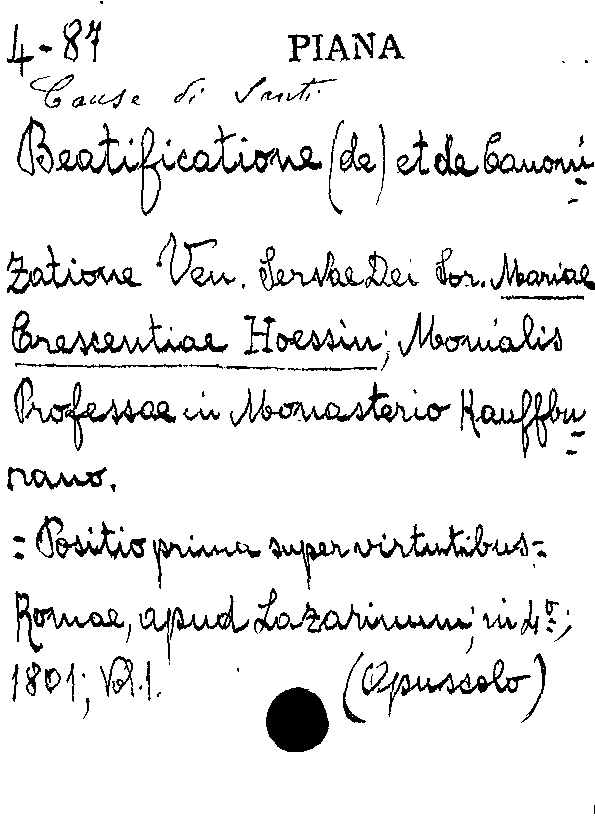 4-87 PIANA
Cause di Santi
Beatificatione (de) et de Canoni=
zatione Ven. Servae Dei Sor. Mariae
Crescentiae Hoessin; Monialis
Professae in Monasterio Kauffbu=
rano.
= Positio prima super virtutibus=
Romae, apud Lazarinum; in 4º;
1801; Vol. 1. (Opuscolo)